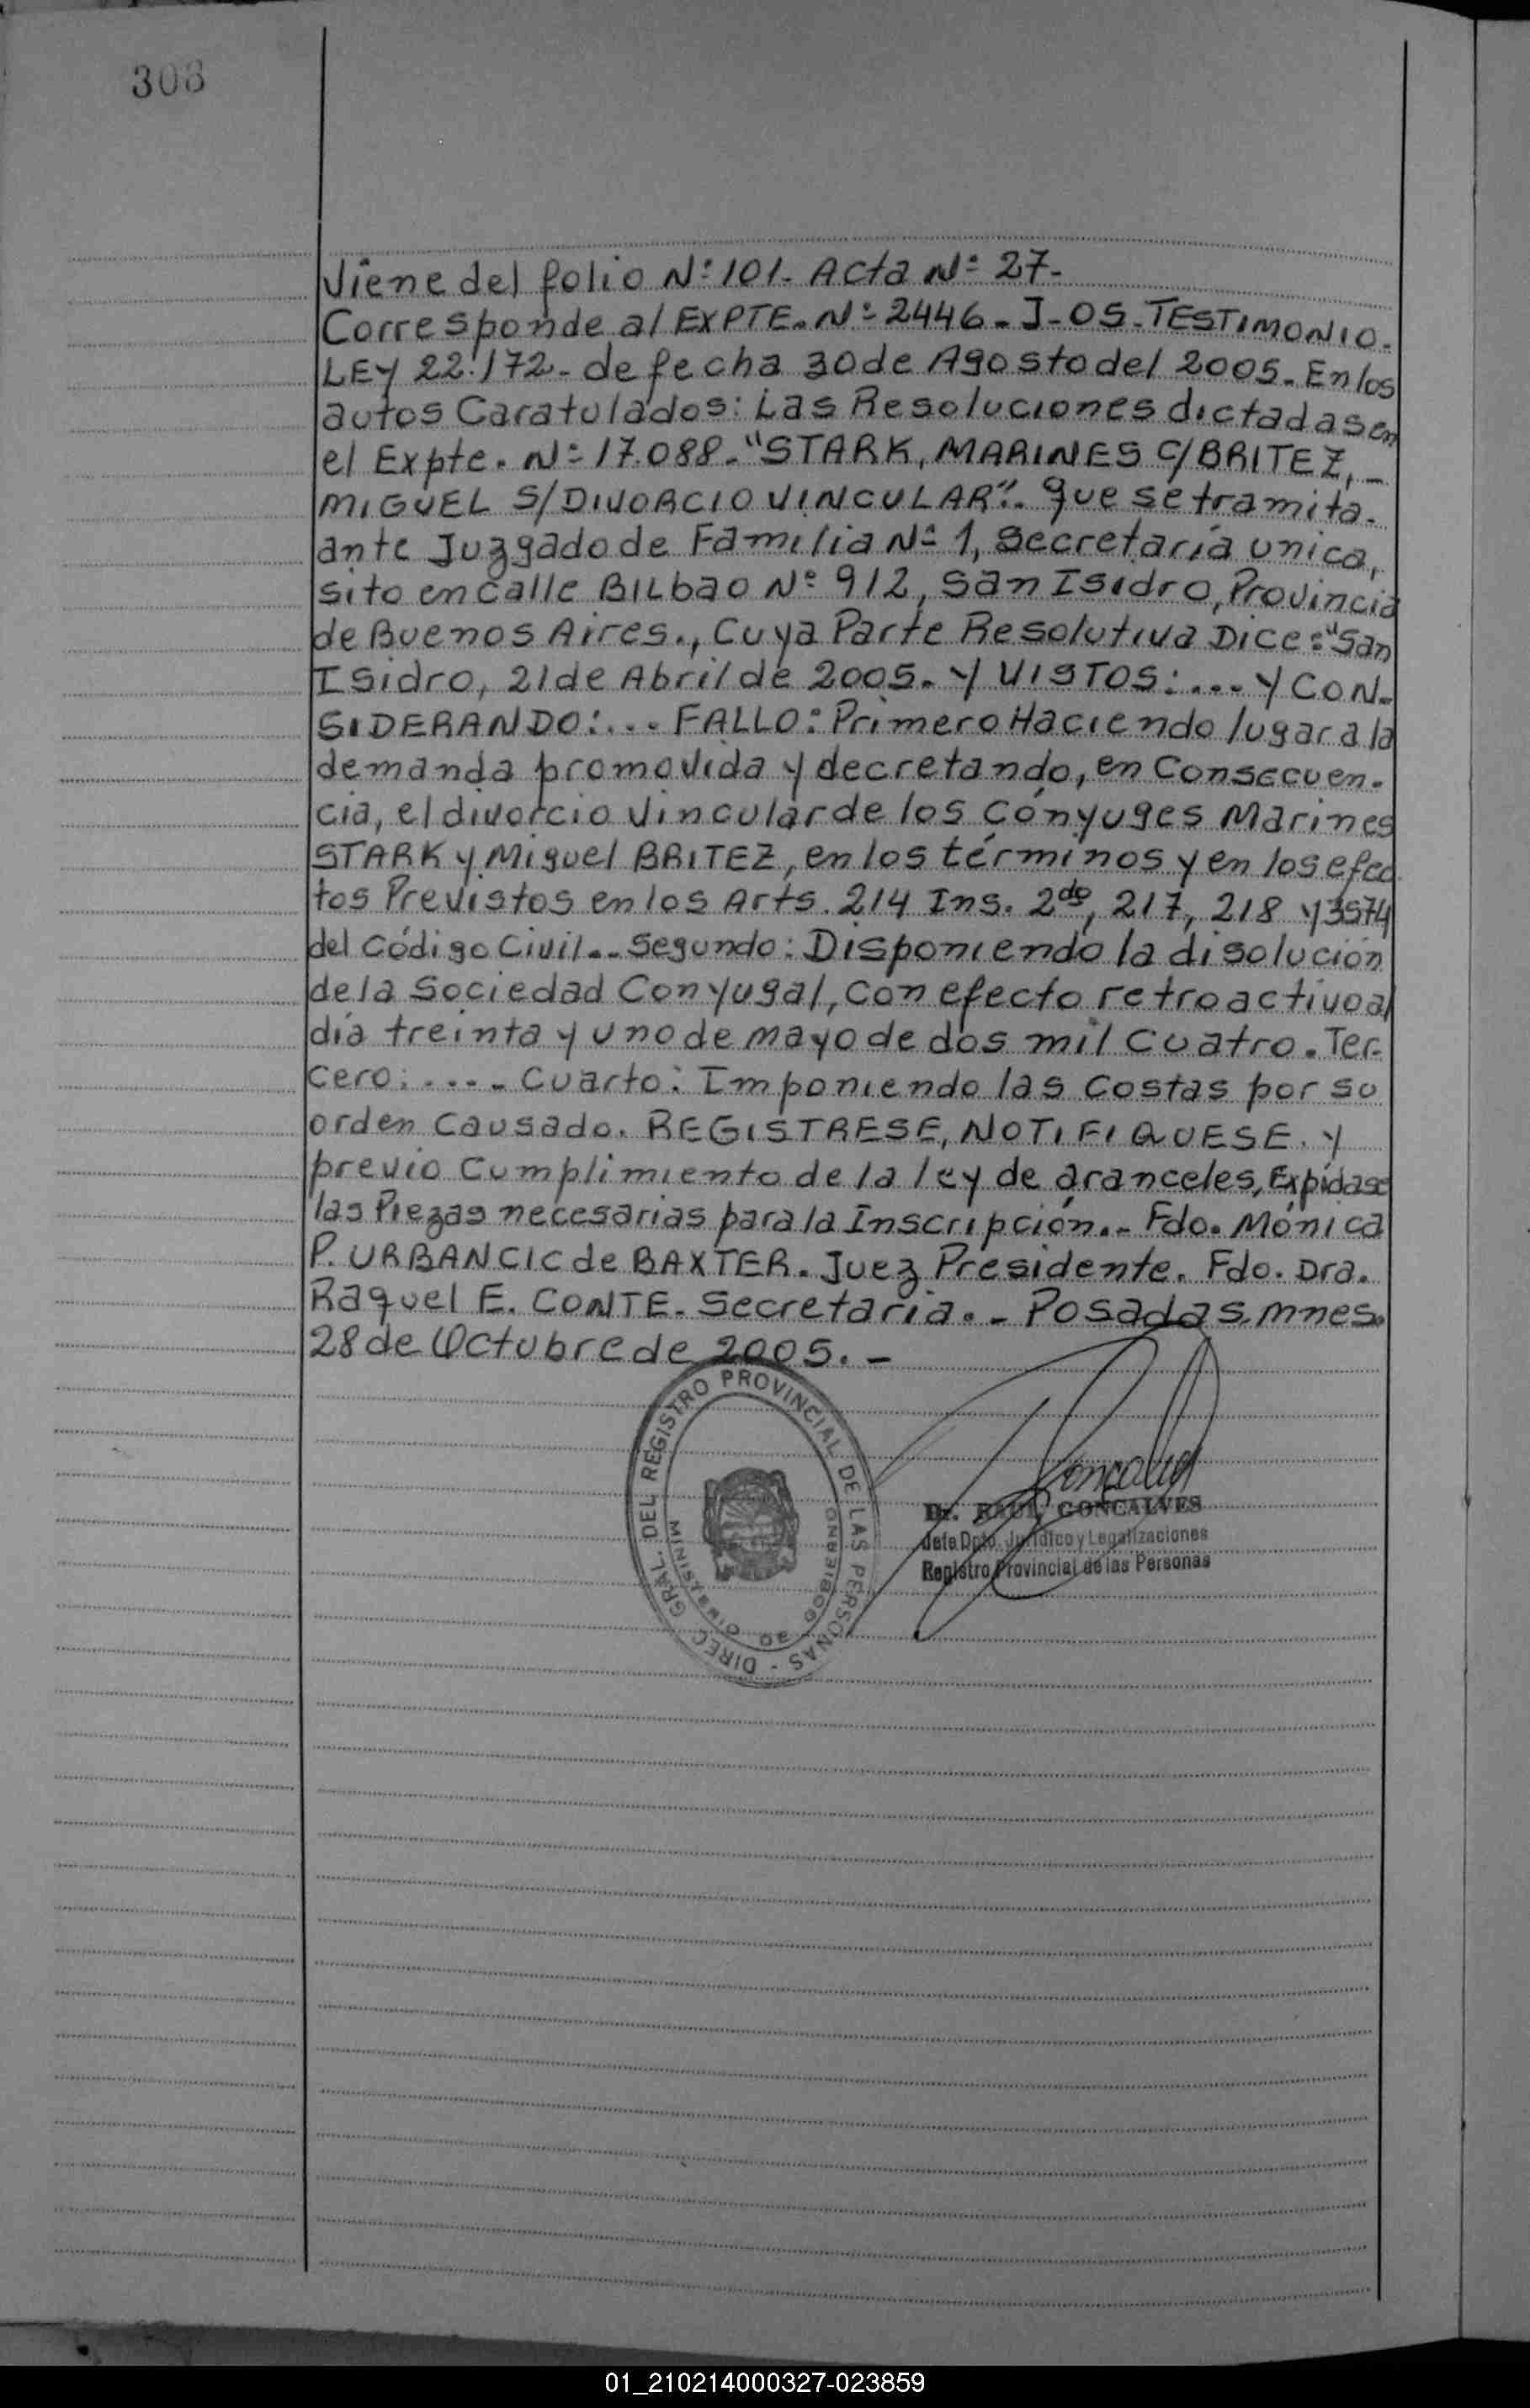 308
Viene del folio Nº 101- Acta Nº 27-
Corresponde al EXPTE. Nº 2446 - J-05-TESTIMONIO-
LEY 22.172- de fecha 30 de Agosto del 2005. En los
autos Caratulados: Las Resoluciones dictadas en
el Expte. Nº 17.088-"STARK, MARINES C/BRITEZ,-
MIGUEL S/DIVORCIO VINCULAR". que se tramita-
ante Juzgado de Familia Nº 1, Secretaría unica,
sito en Calle BILbao Nº 912, San Isidro, Provincia
de Buenos Aires., Cuya Parte Resolutiva Dice: "San
Isidro, 21 de Abril de 2005. Y VISTOS:.... Y CON-
SIDERANDO:... FALLO: Primero Haciendo lugar a la
demanda promovida y decretando, en Consecuen-
cia, el divorcio Vincular de los Cónyuges Marines
STARK y Miguel BRITEZ, en los términos y en los efec
tos Previstos en los Arts. 214 Ins. 2do, 217, 218 y 3574
del Código Civil.-- Segundo: Disponiendo la disolución
de la Sociedad Conyugal, Con efecto retroactivo al
día treinta y uno de mayo de dos mil Cuatro. Ter-
Cero:..... Cuarto: Imponiendo las Costas por su
orden Causado. REGISTRESE, NOTIFIQUESE. Y
previo Cumplimiento de la ley de aranceles, Expídase
las Piezas necesarias para la Inscripción.- Fdo. Mónica
P. URBANCIC de BAXTER. Juez Presidente. Fdo. Dra.
Raquel E. CONTE- Secretaria.- Posadas, mnes.
28 de Octubre de 2005.-
DIREC. GRAL. DEL REGISTRO PROVINCIAL DE LAS PERSONAS -
MINISTERIO DE GOBIERNO
Goncalves
Dr. RAUL GONCALVES
Jefe Dpto. Jurídico y Legalizaciones
Registro Provincial de las Personas
01_210214000327-023859